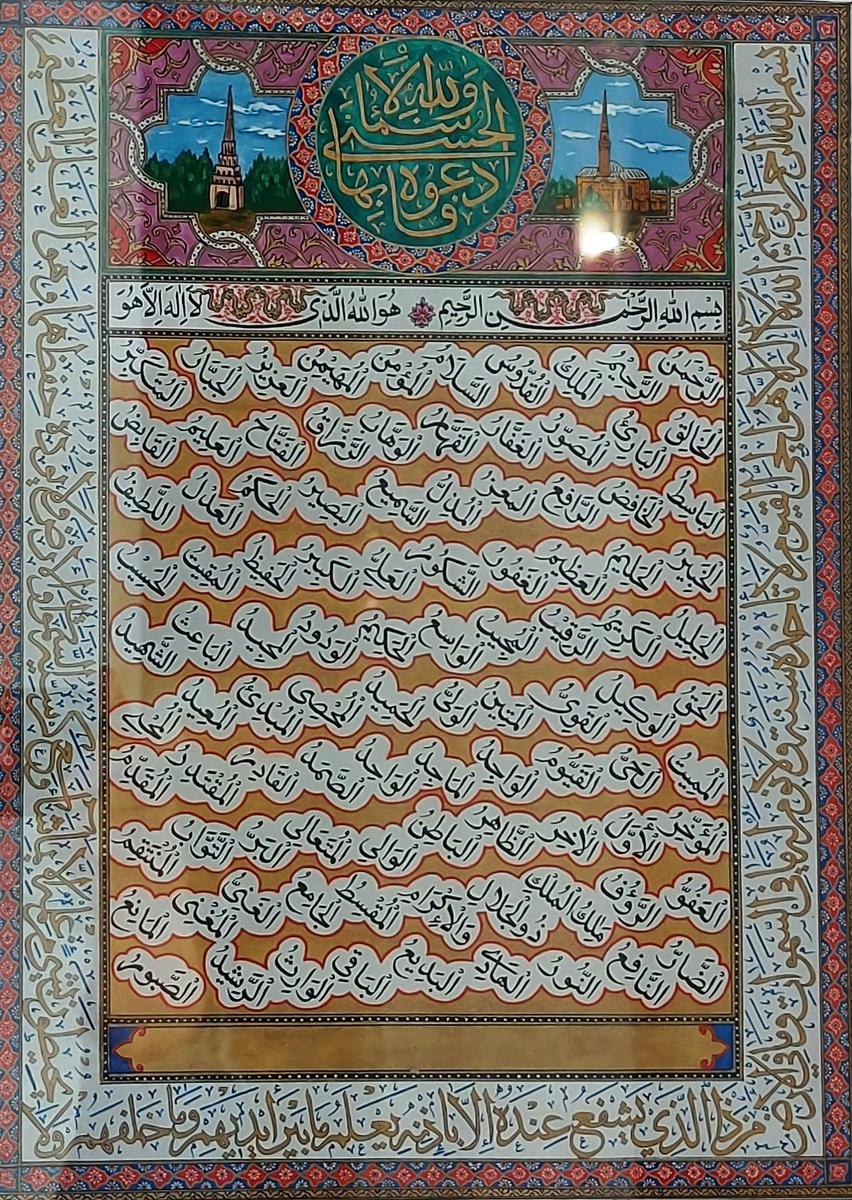 وَلِلَّهِ الْأَسْمَاءُ الْحُسْنَىٰ فَادْعُوهُ بِهَا
بِسْمِ اللهِ الرَّحْمٰنِ الرَّحِيمِ هُوَ اللهُ الَّذِي لَا اِلٰهَ اِلَّا هُوَ
الرَّحْمٰنُ الرَّحِيمُ الْمَلِكُ الْقُدُّوسُ السَّلَامُ الْمُؤْمِنُ الْمُهَيْمِنُ الْعَزِيزُ الْجَبَّارُ الْمُتَكَبِّرُ
الْخَالِقُ الْبَارِئُ الْمُصَوِّرُ الْغَفَّارُ الْقَهَّارُ الْوَهَّابُ الرَّزَّاقُ الْفَتَّاحُ الْعَلِيمُ الْقَابِضُ
الْبَاسِطُ الْخَافِضُ الرَّافِعُ الْمُعِزُّ الْمُذِلُّ السَّمِيعُ الْبَصِيرُ الْحَكَمُ الْعَدْلُ اللَّطِيفُ
الْخَبِيرُ الْحَلِيمُ الْعَظِيمُ الْغَفُورُ الشَّكُورُ الْعَلِيُّ الْكَبِيرُ الْحَفِيظُ الْمُقِيتُ الْحَسِيبُ
الْجَلِيلُ الْكَرِيمُ الرَّقِيبُ الْمُجِيبُ الْوَاسِعُ الْحَكِيمُ الْوَدُودُ الْمَجِيدُ الْبَاعِثُ الشَّهِيدُ
الْحَقُّ الْوَكِيلُ الْقَوِيُّ الْمَتِينُ الْوَلِيُّ الْحَمِيدُ الْمُحْصِي الْمُبْدِئُ الْمُعِيدُ الْمُحْيِي
الْمُمِيتُ الْحَيُّ الْقَيُّومُ الْوَاجِدُ الْمَاجِدُ الْوَاحِدُ الصَّمَدُ الْقَادِرُ الْمُقْتَدِرُ الْمُقَدِّمُ
الْمُؤَخِّرُ الْأَوَّلُ الْآخِرُ الظَّاهِرُ الْبَاطِنُ الْوَالِي الْمُتَعَالِي الْبَرُّ التَّوَّابُ الْمُنْتَقِمُ
الْعَفُوُّ الرَّؤُفُ مَالِكُ الْمُلْكِ ذُو الْجَلَالِ وَالْإِكْرَامِ الْمُقْسِطُ الْجَامِعُ الْغَنِيُّ الْمُغْنِي الْمَانِعُ
الضَّارُّ النَّافِعُ النُّورُ الْهَادِي الْبَدِيعُ الْبَاقِي الْوَارِثُ الرَّشِيدُ الصَّبُورُ
بسم الله الرحمن الرحيم الله لا اله الا هو الحي القيوم لا تأخذه سنة ولا نوم له ما في السموات وما في الارض
من ذا الذي يشفع عنده إلا باذنه يعلم ما بين ايديهم وما خلفهم ولا
يحيطون بشيء من علمه إلا بما شاء وسع كرسيه السموات والارض ولا يؤده حفظهما وهو العلي العظيم